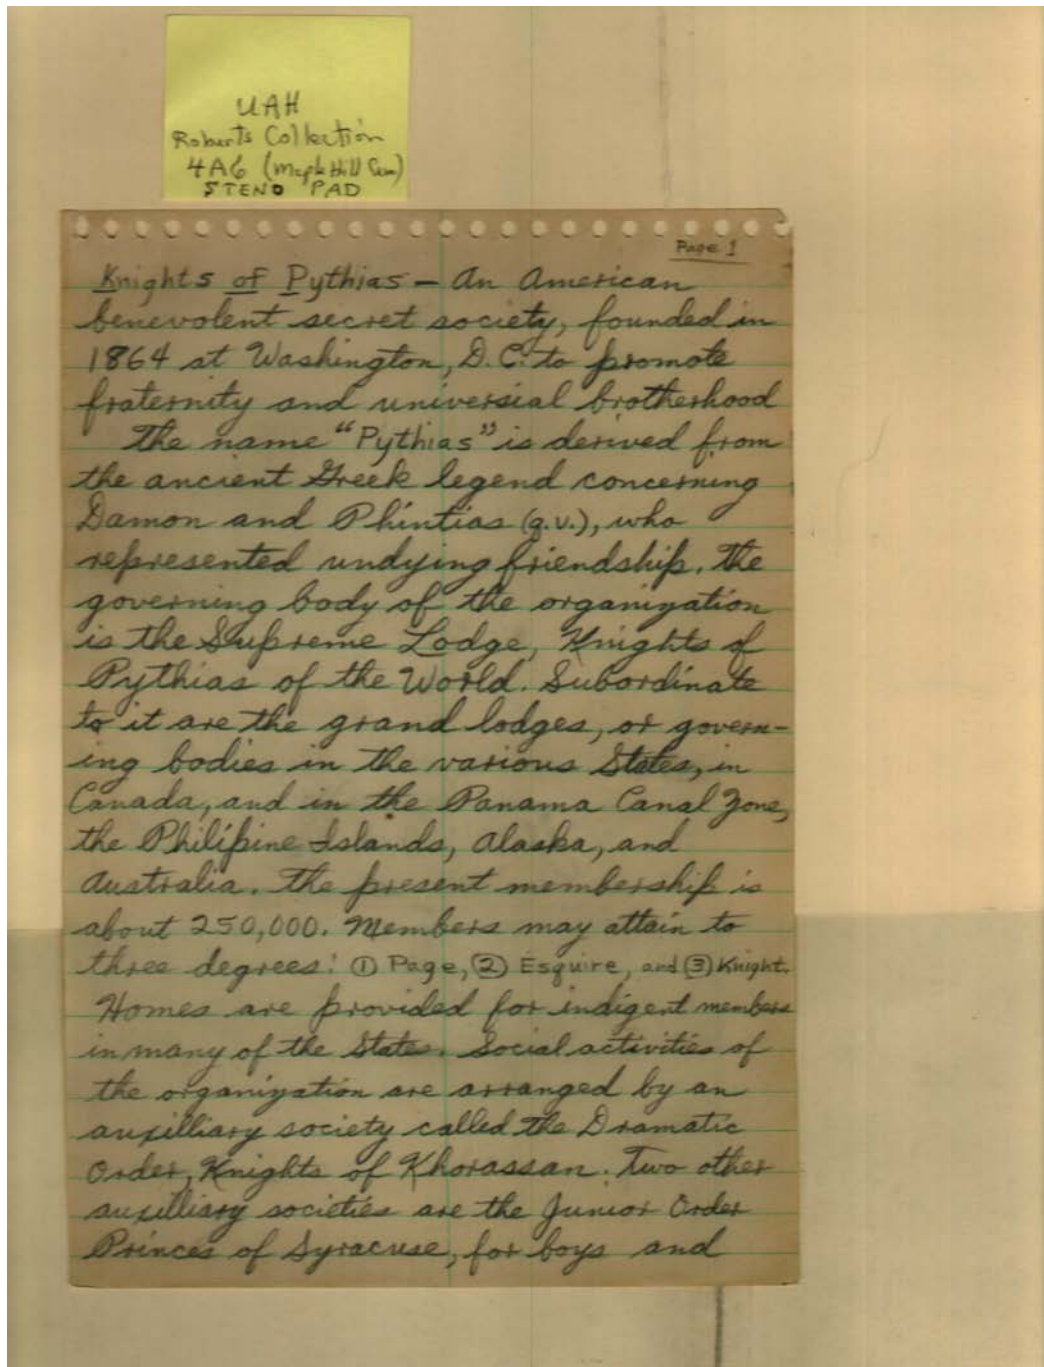 UAH
Roberts Collection
4A6 (Maple Hill Cem)
STENO PAD
Page 1
Knights of Pythias — An American
benevolent secret society, founded in
1864 at Washington, D.C. to promote
fraternity and universial brotherhood
The name "Pythias" is derived from
the ancient Greek legend concerning
Damon and Phintias (q.v.), who
represented undying friendship. The
governing body of the organization
is the Supreme Lodge, Knights of
Pythias of the World. Subordinate
to it are the grand lodges, or govern-
ing bodies in the various States, in
Canada, and in the Panama Canal Zone,
the Philipine Islands, Alaska, and
Australia. The present membership is
about 250,000. Members may attain to
three degrees: ① Page, ② Esquire, and ③ Knight.
Homes are provided for indigent members
in many of the States. Social activities of
the organization are arranged by an
auxilliary society called the Dramatic
Order, Knights of Khorassan. Two other
auxilliary societies are the Junior Order
Princes of Syracuse, for boys and